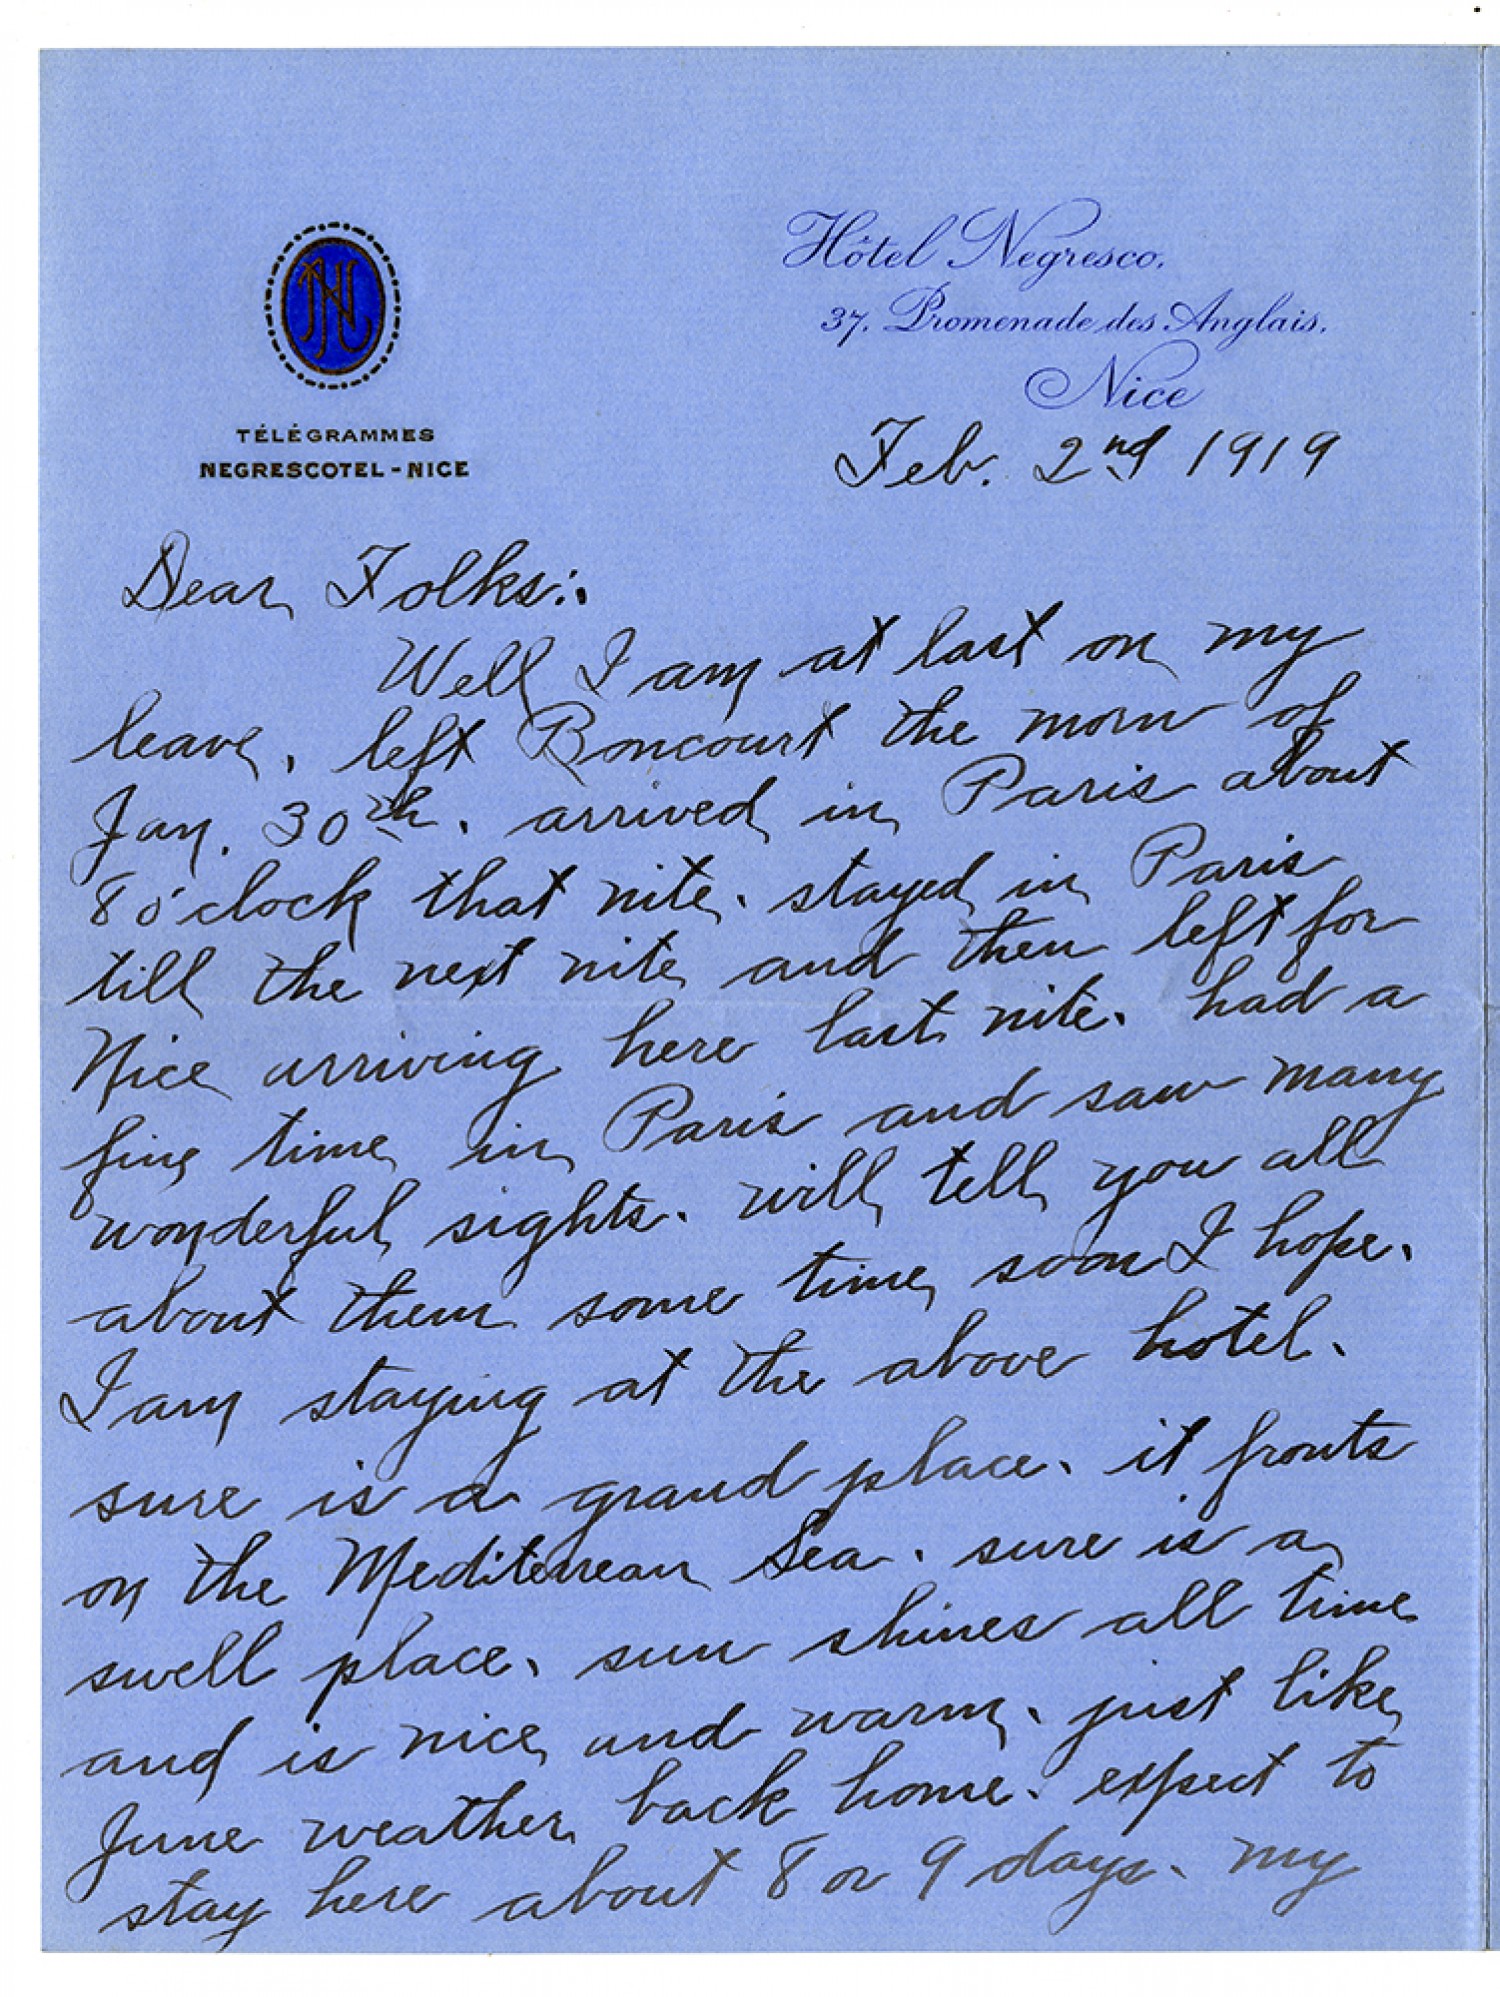 HN
TÉLÉGRAMMES
NEGRESCOTEL - NICE
Hôtel Negresco.
37, Promenade des Anglais.
Nice
Feb. 2nd 1919
Dear Folks:.
Well I am at last on my
leave. left Boncourt the morn of
Jan. 30th. arrived in Paris about
8 o'clock that nite. stayed in Paris
till the next nite and then left for
Nice arriving here last nite. had a
fine time in Paris and saw many
wonderful sights. will tell you all
about them some time soon I hope.
I am staying at the above hotel.
sure is a grand place. it fronts
on the Mediterrean Sea. sure is a
swell place. sun shines all time
and is nice and warm. just like
June weather back home. expect to
stay here about 8 or 9 days. my